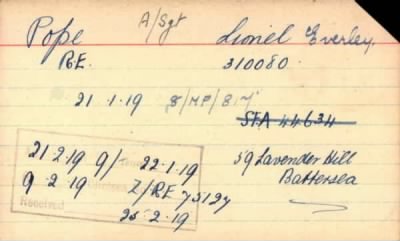 Pope A/Sgt Lionel Everley.
R.E. 310080.
21.1.19 8/MP/817
SFA 44634
21.2.19 9/ 22.1.19 59 Lavender Hill
9.2.19 Z/RE 75127 Battersea
Received 25.2.19